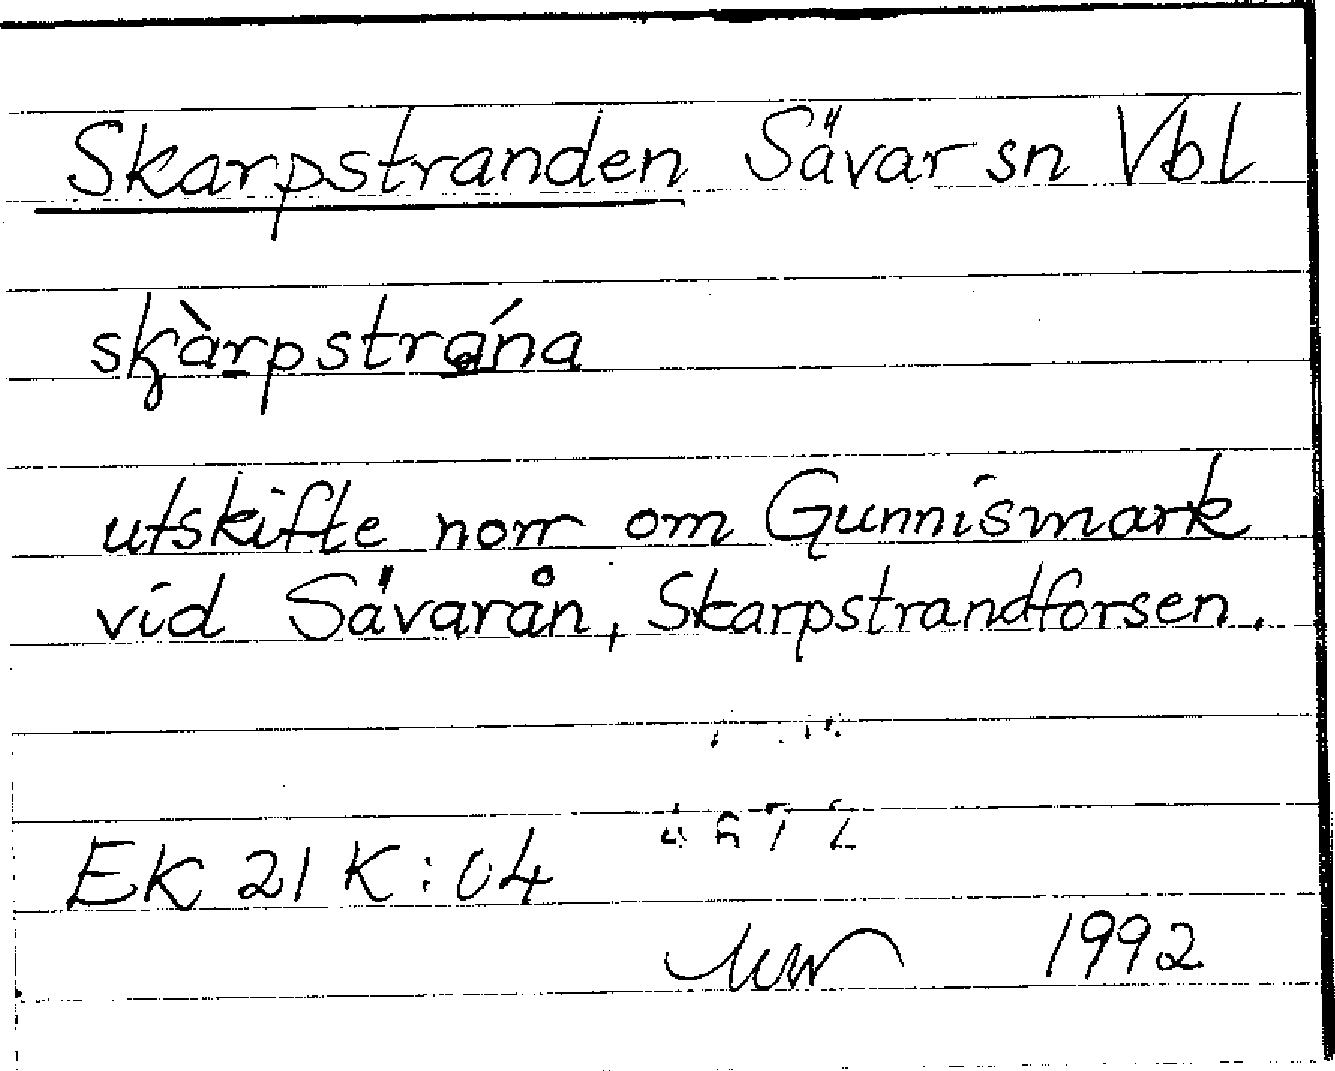 Skarpstranden Sävar sn Vbl
skàrpstrána
utskifte norr om Gunnismark
vid Sävarån, Skarpstrandforsen.
EK 21 K : 04
1992